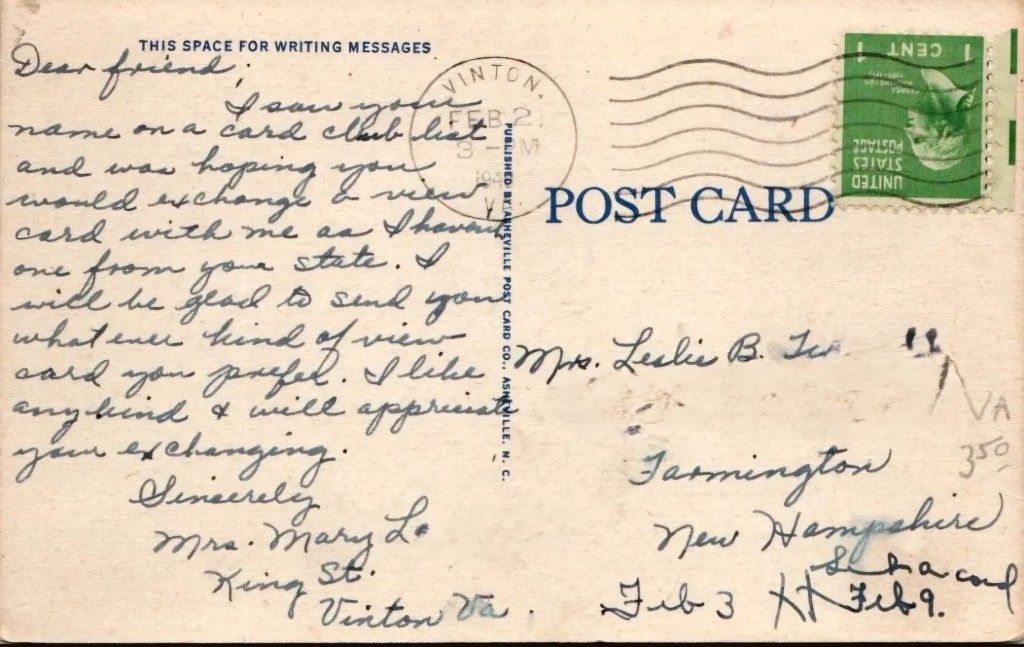 THIS SPACE FOR WRITING MESSAGES
Dear friend,
I saw your
name on a card club list
and was hoping you
would exchange a view
card with me as I havent
one from your state. I
will be glad to send you
what ever kind of view
card you prefer. I like
any kind & will appreciate
your exchanging.
Sincerely
Mrs. Mary L.
King St.
Vinton Va.
PUBLISHED BY ASHEVILLE POST CARD CO., ASHEVILLE, N. C.
VINTON.
FEB 2
3 - M
194
VA.
1 CENT 1
UNITED
STATES
POSTAGE
POST CARD
Mrs. Leslie B.
Farmington
New Hampshire
VA
350
Feb 3
a card
Feb 9.